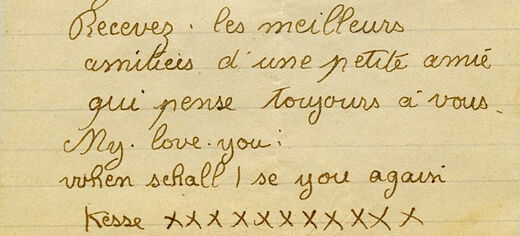 Recevez. les meilleurs
amitiées d'une petite amié
qui pense toujours à vous.
My. love. you:
when schall I se you again
Kesse XXXXXXXXXXX